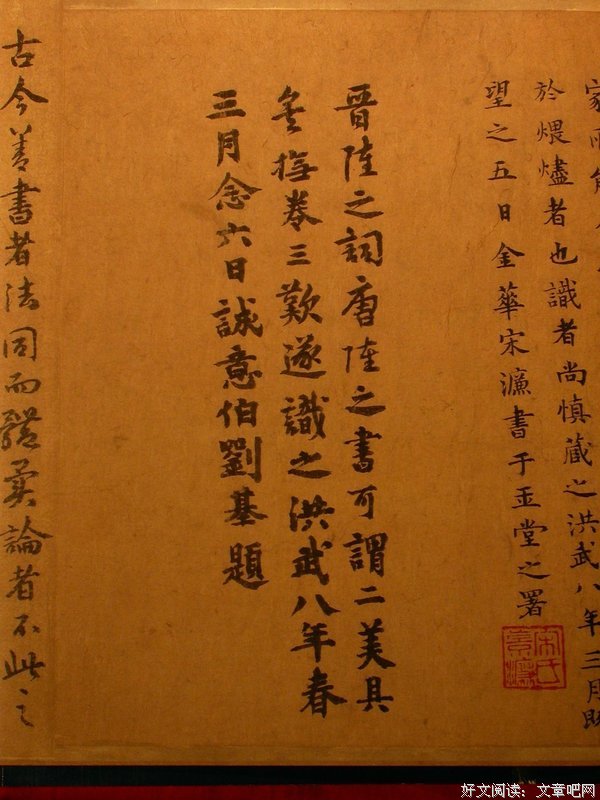 家
於煨燼者也識者尚慎藏之洪武八年三月既
望之五日金華宋濂書于玉堂之署
宋氏景濂
晉陸之詞唐陸之書可謂二美具
矣撫卷三歎遂識之洪武八年春
三月念六日誠意伯劉基題
古今善書者法同而體異論者不此之
好文阅读：文章吧网